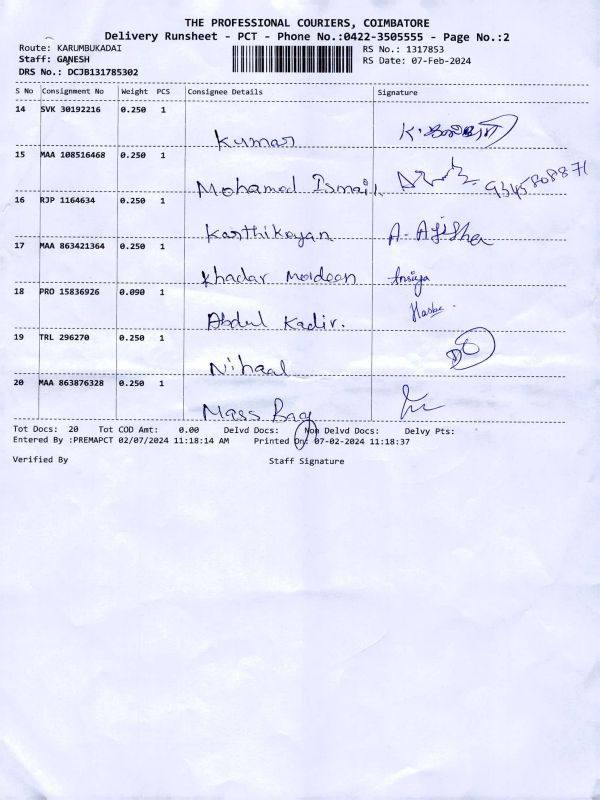 THE PROFESSIONAL COURIERS, COIMBATORE
Delivery Runsheet - PCT - Phone No.:0422-3505555 - Page No.:2
Route: KARUMBUKADAI
RS No.: 1317853
Staff: GANESH
RS Date: 07-Feb-2024
DRS No.: DCJB131785302
S No Consignment No Weight PCS Consignee Details Signature
14 SVK 30192216 0.250 1
Kumar
15 MAA 108516468 0.250 1
Mohamed Ismail 9345808871
16 RJP 1164634 0.250 1
Karthikeyan A. Ajisha
17 MAA 863421364 0.250 1
Khadar Moideen
18 PRO 15836926 0.090 1
Abdul Kadir.
19 TRL 296270 0.250 1
Nihaal
20 MAA 863876328 0.250 1
Mass Bag
Tot Docs: 20 Tot COD Amt: 0.00 Delvd Docs: Non Delvd Docs: Delvy Pts:
Entered By :PREMAPCT 02/07/2024 11:18:14 AM Printed On: 07-02-2024 11:18:37
Verified By Staff Signature